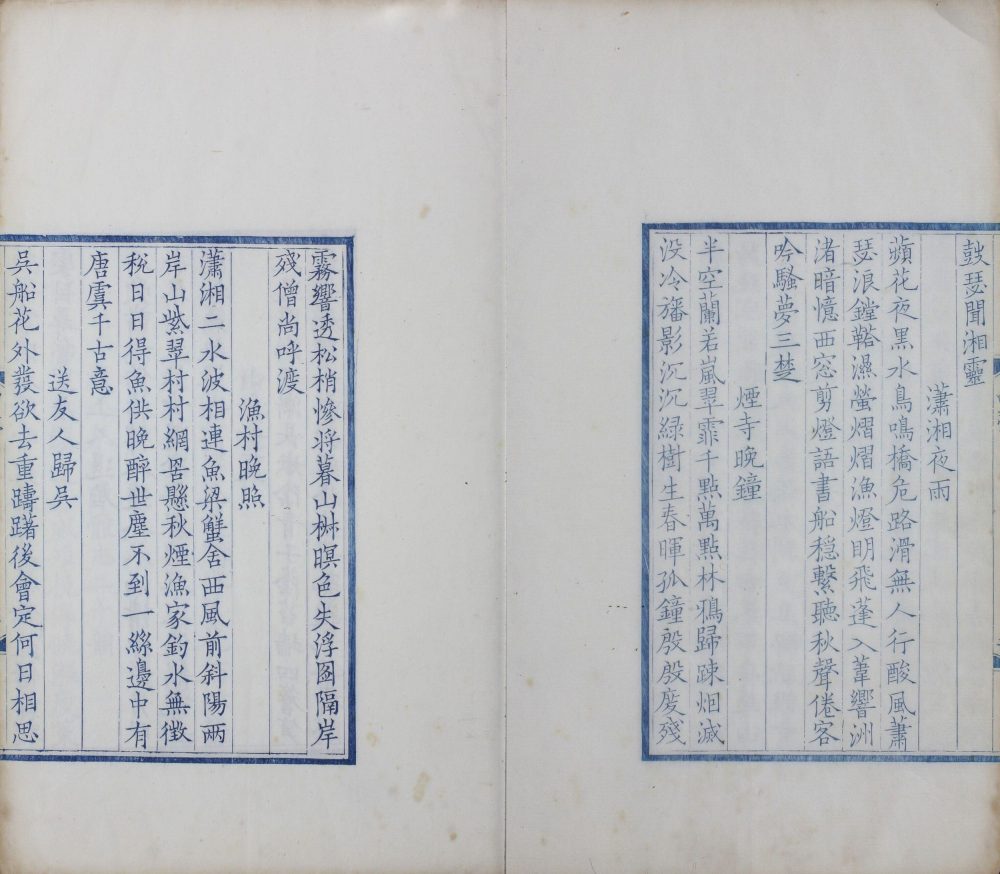 鼓瑟聞湘靈
瀟湘夜雨
蘋花夜黑水鳥鳴橋危路滑無人行酸風蕭
瑟浪鏜鞳濕螢熠熠漁燈明飛蓬入葦響洲
渚暗憶西窓剪燈語書船穏繫聽秋聲倦客
吟騷夢三楚
煙寺晚鐘
半空蘭若嵐翠霏千點萬點林鴉歸疎烟滅
没冷旛影沉沉綠樹生春暉孤鐘殷殷度殘
霧響透松梢慘将暮山樹暝色失浮圖隔岸
殘僧尚呼渡
漁村晚照
瀟湘二水波相連魚梁蟹舍西風前斜陽兩
岸山紫翠村村網罟懸秋煙漁家釣水無徴
税日日得魚供晚醉世塵不到一絲邊中有
唐虞千古意
送友人歸吳
吳船花外發欲去重躊躇後會定何日相思